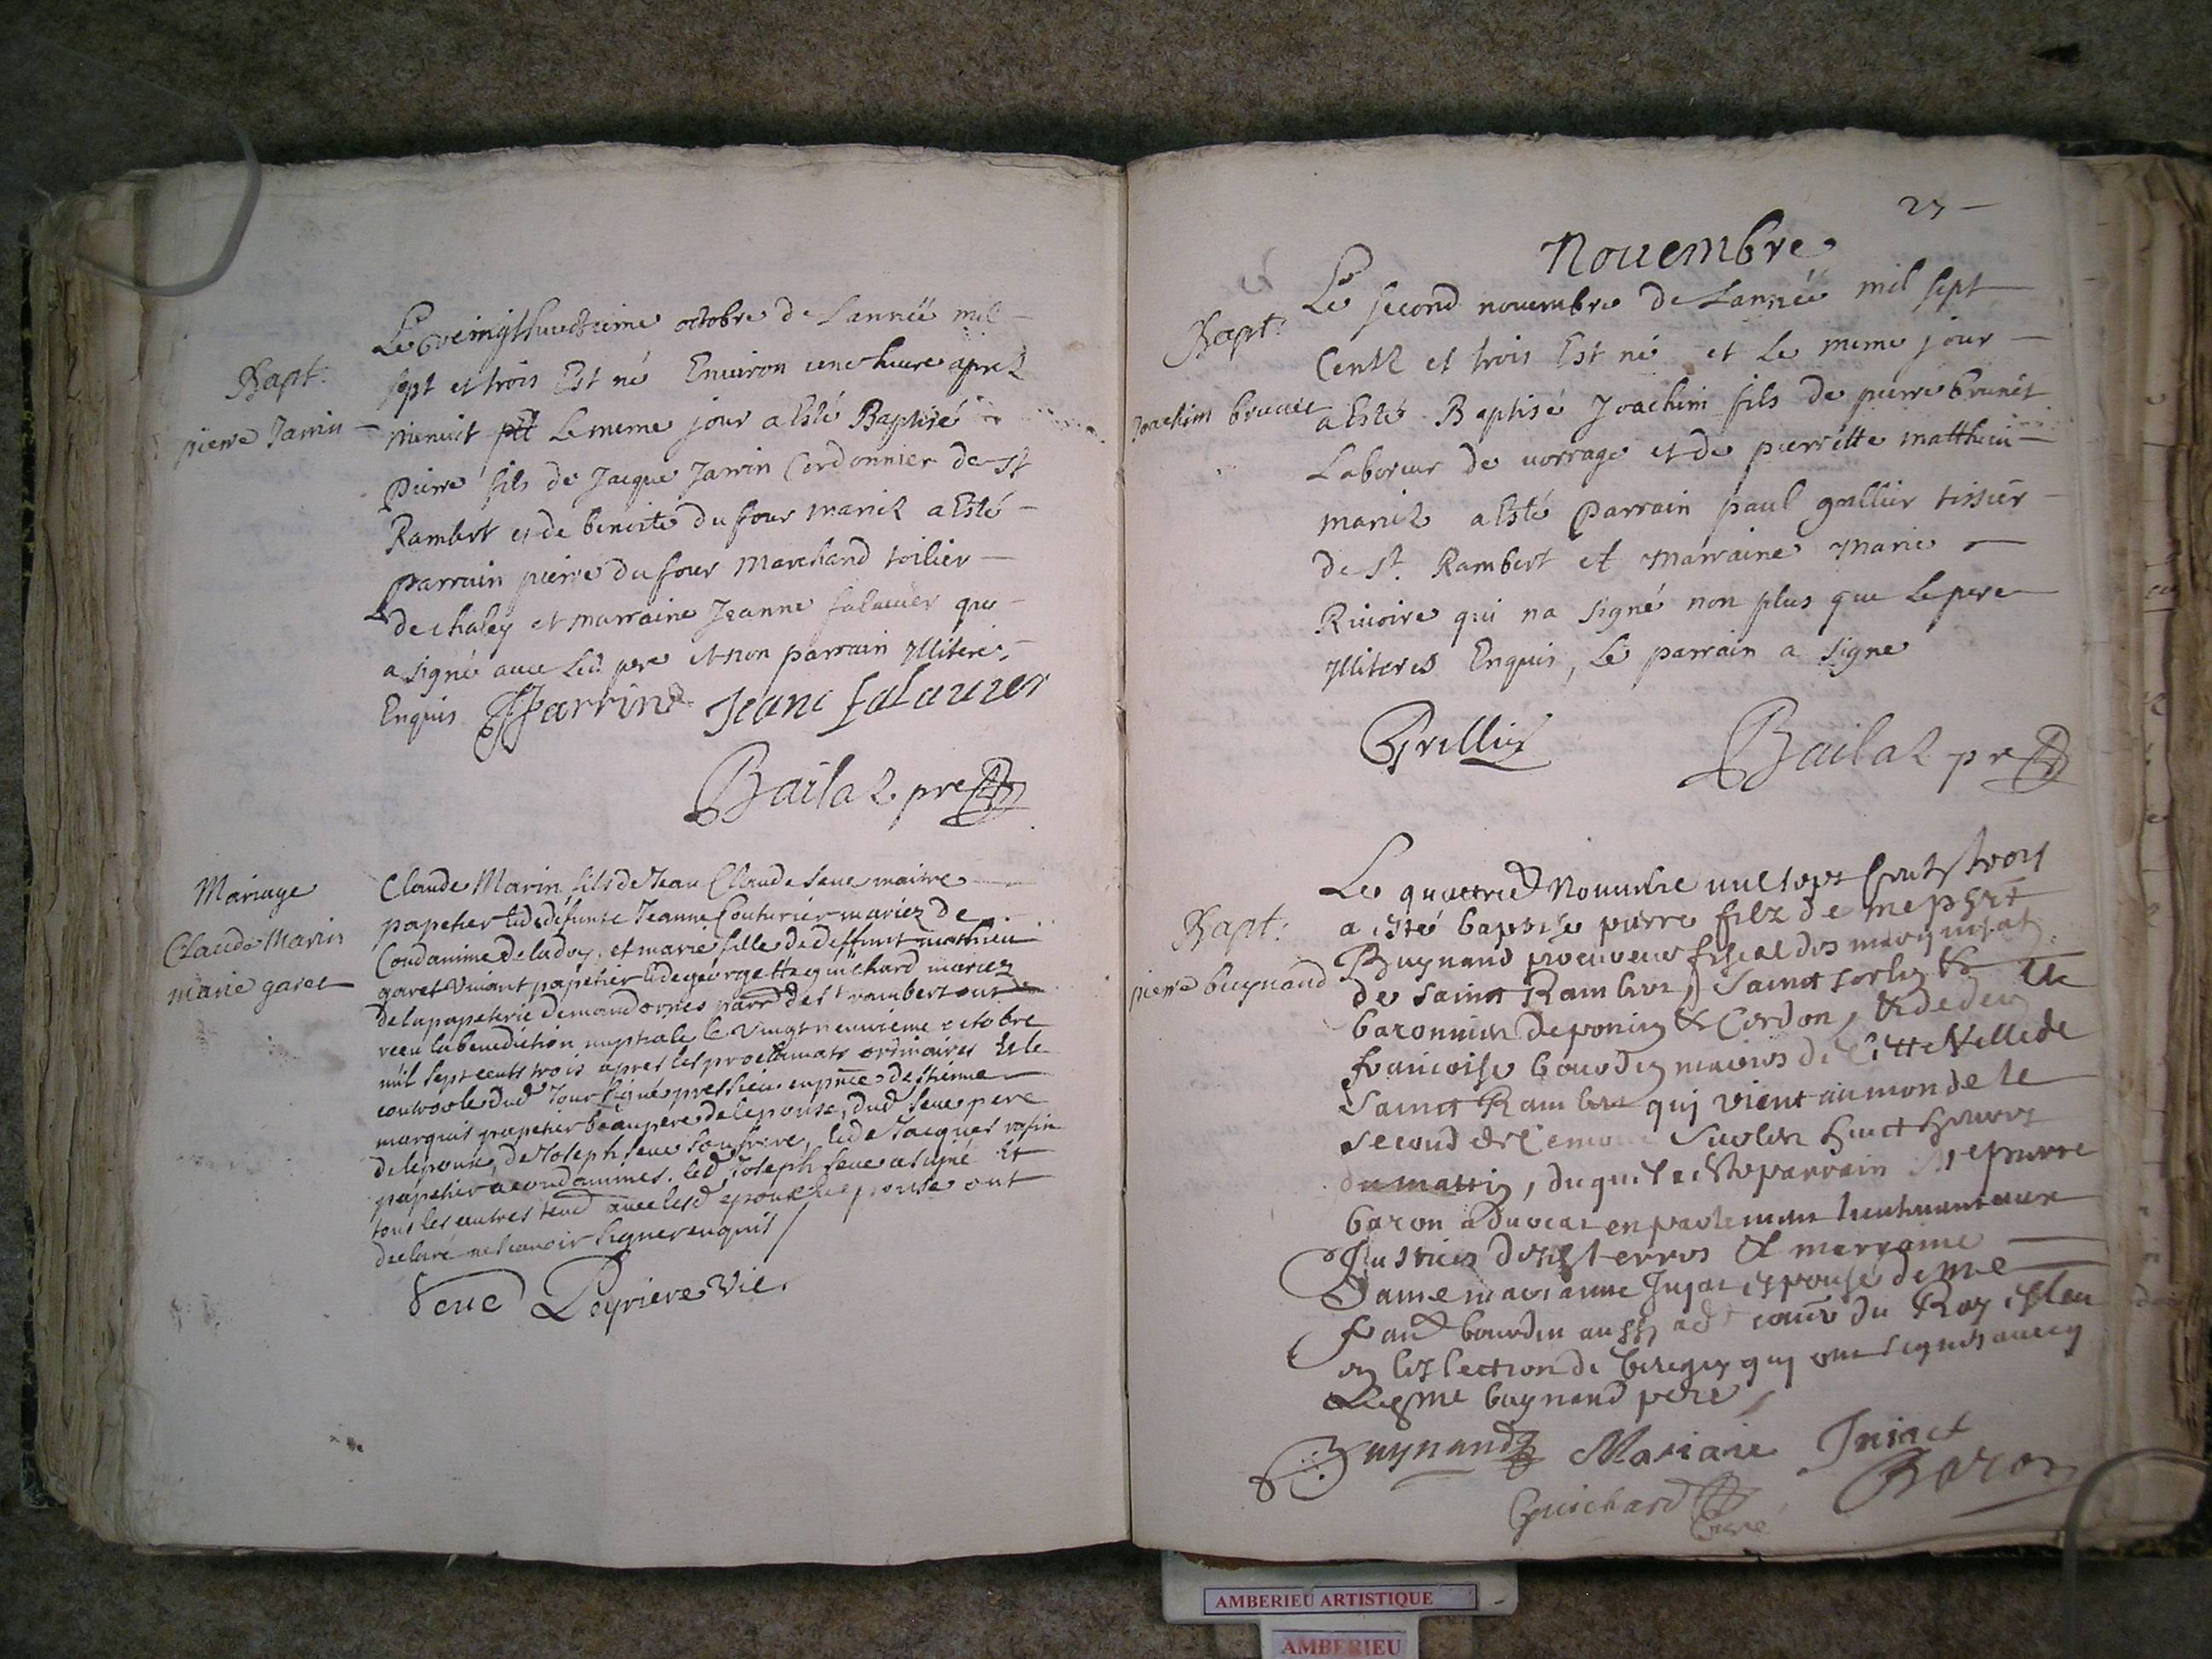 Bapt.
pierre Jarrin
Le veingthuictieme octobre de Lanneé mil
sept et trois Est né Environ une heure aprez
menuit Le meme jour a Esté Baptisé
Pierre fils de Jacque Jarrin Cordonnier de St
Rambert et de benoite du four mariez a Esté
parrain pierre du four Marchand toilier
de chaley et marraine Jeanne falauier qui
a signé avec Led. pere et non parrain Illiteré
Enquis JJarrin Jeane falauier
Bailaz pre
Mariage
Claude Marin
marie garet
Claude Marin, fils de Jean Claude seue maitre
papetier & de defunte Jeanne Couturier mariez de
Condamine de ladoy, et marie fille de deffunt mathieu
garet Vivant papetier & de georgette guichard mariez
de la papeterie de mandornes parr. de st rambert ont
receu la benediction nuptiale le Vingt neuvieme octobre
mil sept cents trois apres les proclamats ordinaires Et le
controole dud Jour signé pressieu en pnce d'estienne
marquis papetier beaupere de lepouse, dud seue pere
de lepoux, de Joseph seue son frere, & de Jacques rosin
papetier a condamines. led. Joseph seue a signé Et
tous les autres avec lesd epoux & epouse ont
declaré ne scavoir signer enquis
Seue Leyriere Vic.
27
Nouembre
Bapt.
Joachim brunet
Le second nouembre de Lanneé mil sept
Centz et trois Est né et Le meme jour
a Esté Baptisé Joachim fils de pierre brunet
Laboreur de vorrage et de pierrette matthieu
mariez a Esté Parrain paul grillier tissier
de St. Rambert et Marraine Marie
Riuoire qui na signé non plus que Le pere
Illiteres Enquis, Le parrain a signe
Grillier
Bailaz pre
Bapt:
pierre buynand
Le quattrie Nouembre mil sept centz trois
a esté baptisé pierre filz de me
Buynand procureur fiscal des marquisats
de Sainct Rambert, Sainct Sorlin &
baronnies de ponin & Cordon, & de de
francoise bourdin mariés de Cette Ville de
Sainct Rambert quj vient au monde le
second de Ce mois sur les huict heures
du mattin, duquel a esté parrain Me pierre
baron aduocat en parlement lieutenant aux
Justices desd terres & marraine
Dame marianne Injac espouse de me
bourdin aussy adt du Roy esleu
en leslection de belley quj ont signés avec
Led me buynand pere
Buynand Mariane Iniact
Baron
Guichard
Curé
AMBERIEU ARTISTIQUE
AMBERIEU